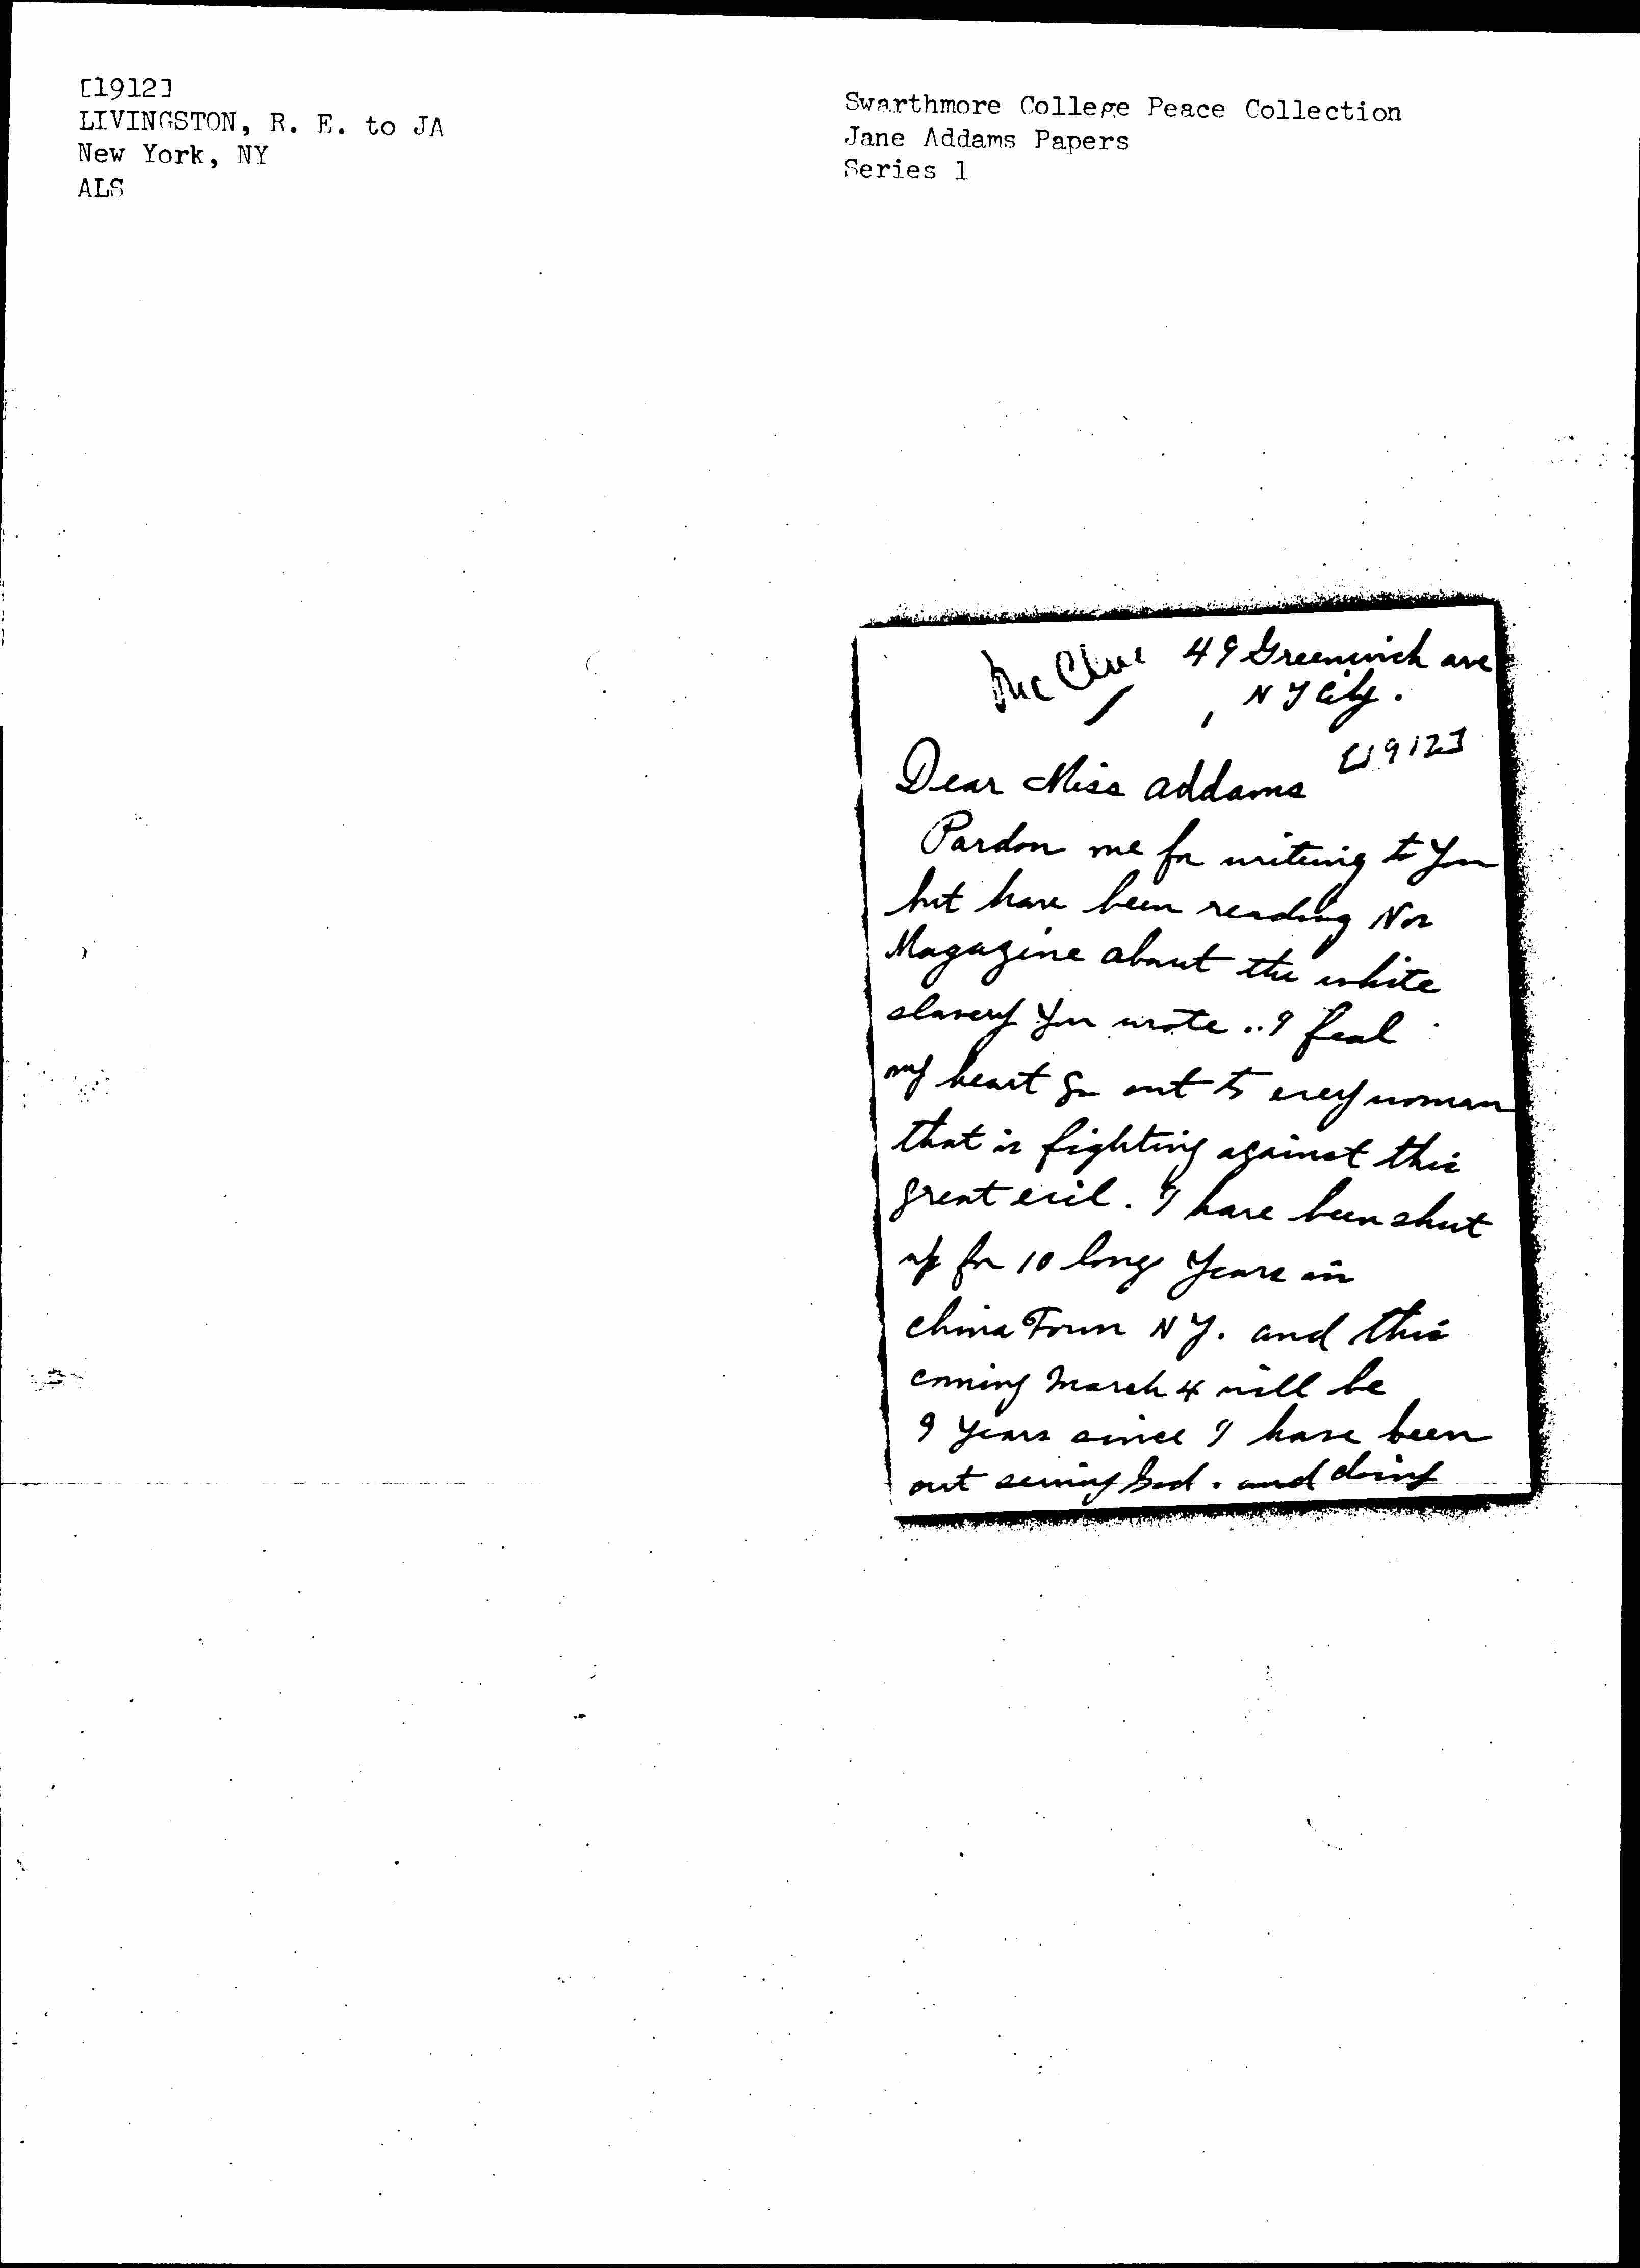 [1912]
LIVINGSTON, R. E. to JA
New York, NY
ALS
Swarthmore College Peace Collection
Jane Addams Papers
Series 1
Mc Clure 49 Greenwich ave
N Y City.
[1912]
Dear Miss Addams
Pardon me for writeing to You
but have been reading Nov
Magazine about the white
slavery You wrote .. I feal
my heart go out to every woman
that is fighting against this
great evil. I have been shut
up for 10 long Years in
China Town N Y. and this
coming March 4 will be
9 Years since I have been
out serving God. and doing